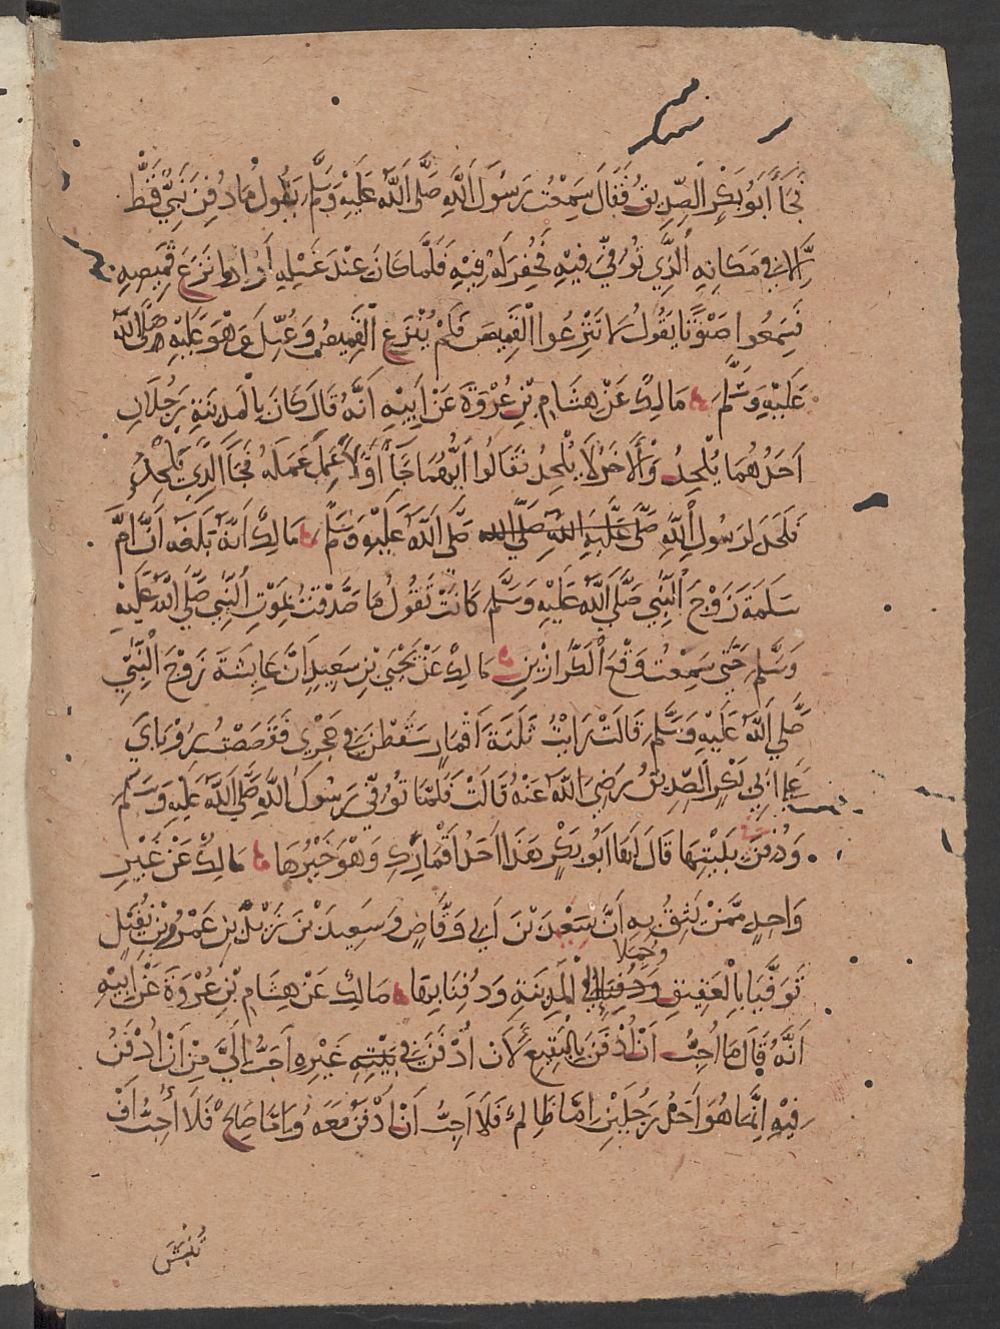 فَجَآءَ اَبُو بَكْرٍ الصِّدِيقُ فَقَالَ سَمِعْتُ رَسُولَ اَللَّهِ صَلَّى اَللَّهُ عَلَيْهِ وَسَلَّمَ يَقُولُ مَا دُفِنَ نَبِيٌّ قَطُّ
إِلَّا فِي مَكَانِهِ اُلَّذِي تُوُفِّيَ فِيهِ فَحُفِرَ لَهُ فِيهِ فَلَمَّا كَانَ عِنْدَ غَسْلِهِ أَرَادُوا نَزْعَ قَمِيصِهِ
فَسَمِعُوا صَوْتًا يَقُولُ لَا تَنْزِعُوا الْقَمِيصَ فَلَمْ يُنْزَعِ الْقَمِيصُ وَغُسِّلَ وَهُوَ عَلَيْهِ صَلَّى اللَّهُ
عَلَيْهِ وَسَلَّمَ مَالِكٌ عَنْ هِشَامِ بْنِ عُرْوَةَ عَنْ اَبِيهِ اَنَّهُ قَالَ كَانَ بِالْمَدِينَةِ رَجُلَانِ
اَحَدُهُمَا يُلْحِدُ وَاْلَاخَرُ لَا يُلْحِدُ فَقَالُوا اَيُّهُمَا جَآءَ اَوَّلًا عَمِلَ عَمَلَهُ فَجَآءَ الَّذِي يُلْحِدُ
فَلَحَدَ لِرَسُولِ اْللَّهِ صَلَّى عَلَيْهِ اللَّهُ صَلَّى اللَّهُ صَلَّى اَللَّهُ عَلَيْهِ وَسَلَّمَ مَالِكٌ اَنَّهُ بَلَغَهُ اَنَّ اُمَّ
سَلَمَةَ زَوْجَ اْلنَّبِيِّ صَلَّى اَللَّهُ عَلَيْهِ وَسَلَّمَ كَانَتْ تَقُولُ مَا صَدَّقْتُ بِمَوْتِ اْلنَّبِيِّ صَلَّى اَللَّهُ عَلَيْهِ
وَسَلَّمَ حَتَّى سَمِعْتُ وَقْعَ اْلْكَرَازِينِ مَالِكٌ عَنْ يَحْيَى بْنِ سَعِيدٍ اَنَّ عَايِشَةَ زَوْجَ اْلنَّبِيِّ
صَلَّى اَللَّهُ عَلَيْهِ وَسَلَّمَ قَالَتْ رَاَيْتُ ثَلَثَةَ اَقْمَارٍ سَقَطْنَ فِي حَجْرِي فَقَصَصْتُ رُوْيَايَ
عَلَى اَبِي بَكْرٍ الصِّدِيقِ رَضِيَ اَللَّهُ عَنْهُ قَالَتْ فَلَمَّا تُوُفِّيَ رَسُولُ اَللَّهِ صَلَّى اَللَّهُ عَلَيْهِ وَسَلَّمَ
وَدُفِنَ بِبَيْتِهَا قَالَ لَهَا اَبُو بَكْرٍ هَذَا اَحَدُ اَقْمَارِكِ وَهُوَ خَيْرُهَا مَالِكٌ عَنْ غَيْرِ
وَاحِدٍ مِّمَّنْ يَثِقُ بِهِ اَنَّ سَعْدَ بْنَ اَبِي وَقَّاصٍ وَسَعِيدَ بْنَ زَيْدِ بْنِ عَمْرِو بْنِ نُفَيْلٍ
وَحُمِلَا
تُوُفِّيَا بِالْعَقِيقِ وَدُفِنَا اِلَى اْلْمَدِينَةِ وَدُفِنَا بِهَا مَالِكٌ عَنْ هِشَامِ بْنِ عُرْوَةَ عَنْ اَبِيهِ
اَنَّهُ قَالَ مَا اُحِبُّ اَنْ اُدْفَنَ بِالْبَقِيعِ لَاَنْ اُدْفَنَ فِي بَيْتِهِ غَيْرِهِ اَحَبُّ اِلَيَّ مِنْ اَنْ اُدْفَنَ
فِيهِ اِنَّمَا هُوَ اَحَدُ رَجُلَيْنِ اِمَّا ظَالِمٌ فَلَا اُحِبُّ اَنْ اُدْفَنَ مَعَهُ وَاِمَّا صَالِحٌ فَلَا اُحِبُّ اَنْ
تُنْبَشَ